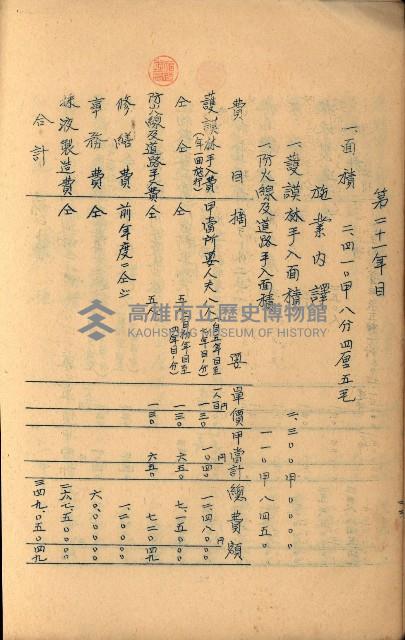 第二十一年目
一、面積　二、四一〇甲八分四厘五毛
施業内譯
一、護謨林手入面積　二、三〇〇甲〇〇〇〇
一、防火線及道路手入面積　一一〇甲八四五〇
費目　摘要　單價　甲當計　總費額
護謨林手入費(年一回施行)　甲當所要人夫八人(自五年目至七年目ノ分)　一人日一円三〇　一〇円四〇　一二、四八〇円〇〇
仝　仝　五人　一三〇　六五〇　七、一五〇〇〇
防火線及道路手入費　仝　五人　一三〇　六五〇　七二〇四九
修繕費　前年度ニ仝シ　一、二〇〇〇〇
事務費　仝　六〇、〇〇〇〇〇
採液製造費　仝　二六七、五〇〇〇〇
合計　三四九、〇五〇四九
高雄市立歷史博物館
KAOHSIUNG MUSEUM OF HISTORY